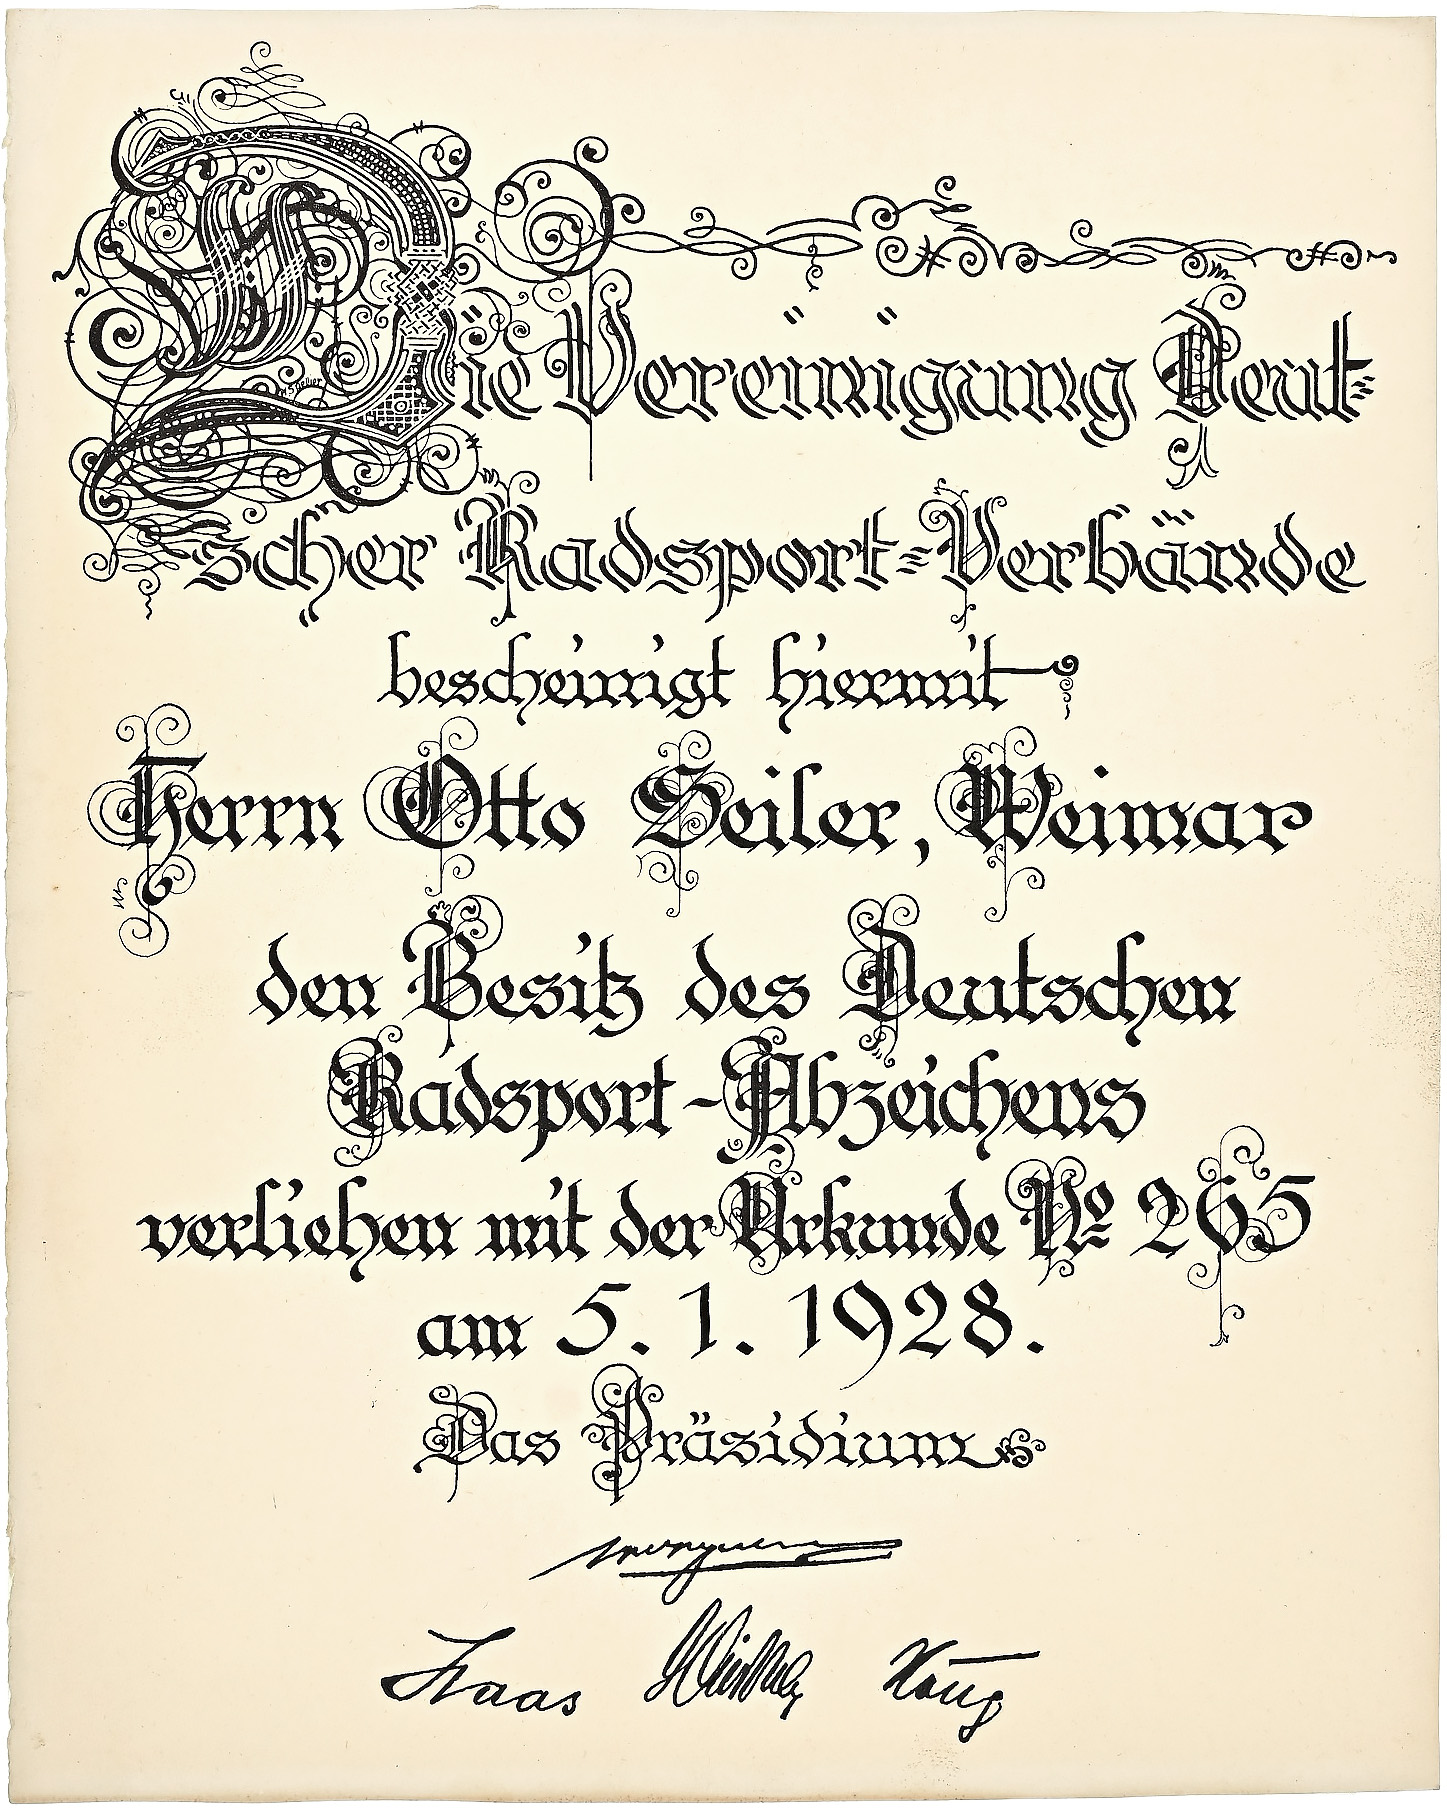 Die Vereinigung Deut=
scher Radsport=Verbände
bescheinigt hiermit
Herrn Otto Seiler, Weimar
den Besitz des Deutschen
Radsport-Abzeichens
verliehen mit der Urkunde No 265
am 5. 1. 1928.
Das Präsidium
Haas